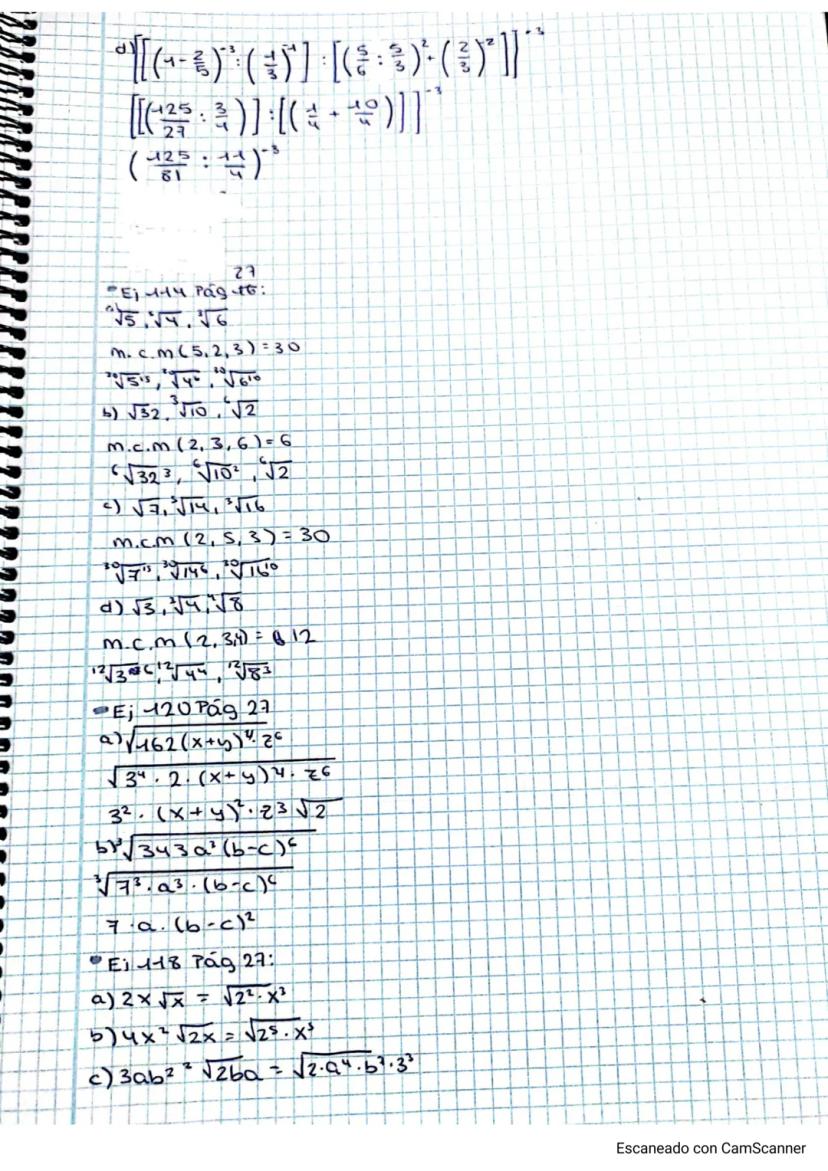 d) [[(1-2/5)^-3 : (1/3)^-1] : [(5/6 : 5/3)^2 + (2/3)^-2]]^-3
[[(125/27 : 3/1)] : [(1/4 + 10/4)]]^-3
(125/81 : 11/4)^-3
27
Ej 114 Pág 16:
a) √5, ⁵√4, ³√6
m.c.m (5,2,3) = 30
³⁰√5¹⁵, ³⁰√4⁶, ³⁰√6¹⁰
b) √32, ³√10, ⁶√2
m.c.m (2,3,6) = 6
⁶√32³, ⁶√10², ⁶√2
c) √7, ⁵√14, ³√16
m.c.m (2, 5, 3) = 30
³⁰√7¹⁵, ³⁰√14⁶, ³⁰√16¹⁰
d) √3, ³√4, ⁴√8
m.c.m (2, 3,4) = 12
¹²√3⁶, ¹²√4⁴, ¹²√8³
Ej 120 Pág 27
a) √162(x+y)⁴·z⁶
√3⁴·2·(x+y)⁴·z⁶
3²·(x+y)²·z³√2
b) ³√343a³(b-c)⁶
³√7³·a³·(b-c)⁶
7·a·(b-c)²
Ej 118 Pág 27:
a) 2x√x = √2²·x³
b) 4x²√2x = √2⁵·x⁵
c) 3ab² ²√2ba = √2·a⁴·b⁷·3³
Escaneado con CamScanner